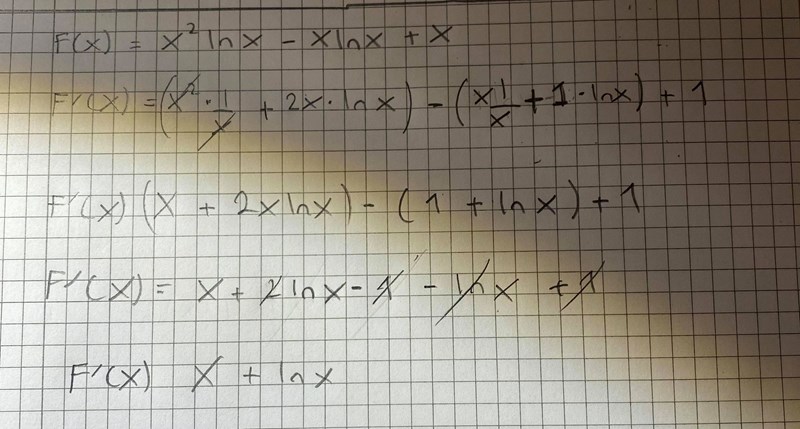 F(x) = x² ln x - x ln x + x
F'(x) = (x² · 1/x + 2x · ln x) - (x 1/x + 1 · ln x) + 1
F'(x) (x + 2x ln x) - (1 + ln x) + 1
F'(x) = x + 2 ln x - 1 - ln x + 1
F'(x) x + ln x